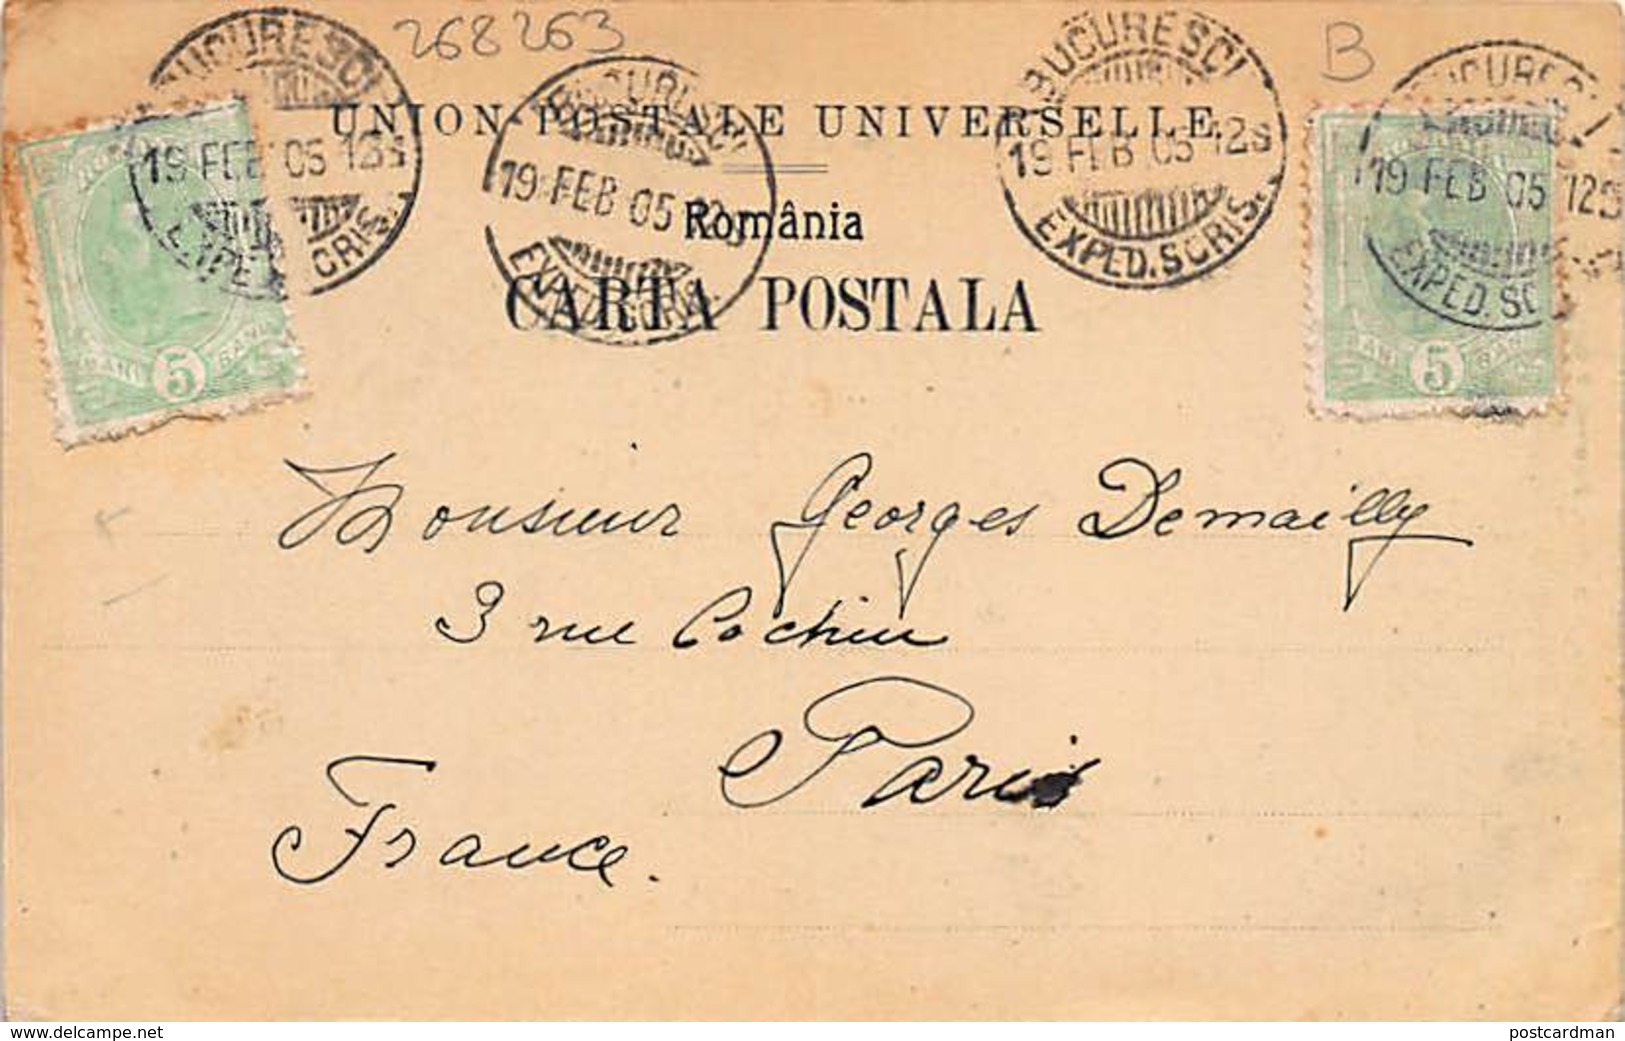 268263
B
BUCURESCI
19 FEB 05 12S
EXPED. SCRIS.
BUCURESCI
19 FEB 05 12S
EXPED. SCRIS.
BUCURESCI
19 FEB 05 12S
EXPED. SCRIS.
BUCURESCI
19 FEB 05 12S
EXPED. SC
UNION POSTALE UNIVERSELLE.
România
CARTA POSTALA
BANI 5 BANI
BANI 5 BANI
Monsieur Georges Demailly
3 rue Cochin
Paris
France.
www.delcampe.net
postcardman